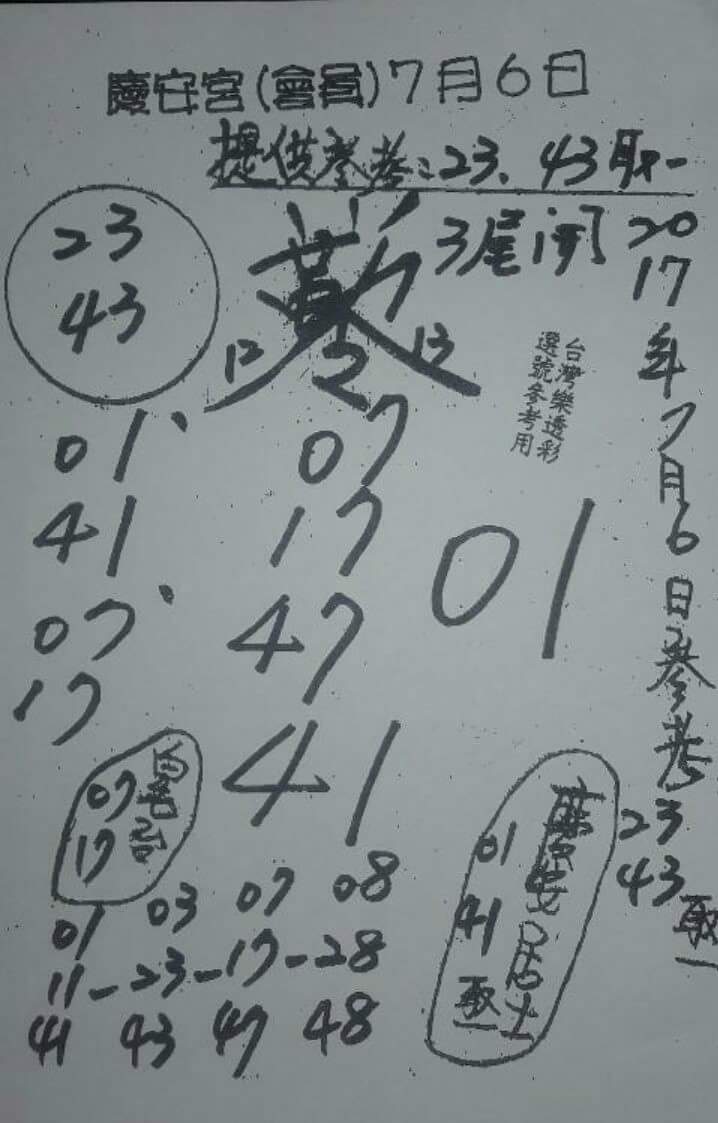 慶安宮(會員)7月6日
提供參考:23、43取一
23
43
3尾開
12
2
13
台灣樂透彩
選號參考用
2017年7月6日參考
23
43
取一
01
41
07
17
07
17
47
41
01
07
17
01
41
取一
居士
01 03 07 08
11-23-17-28
41 43 47 48